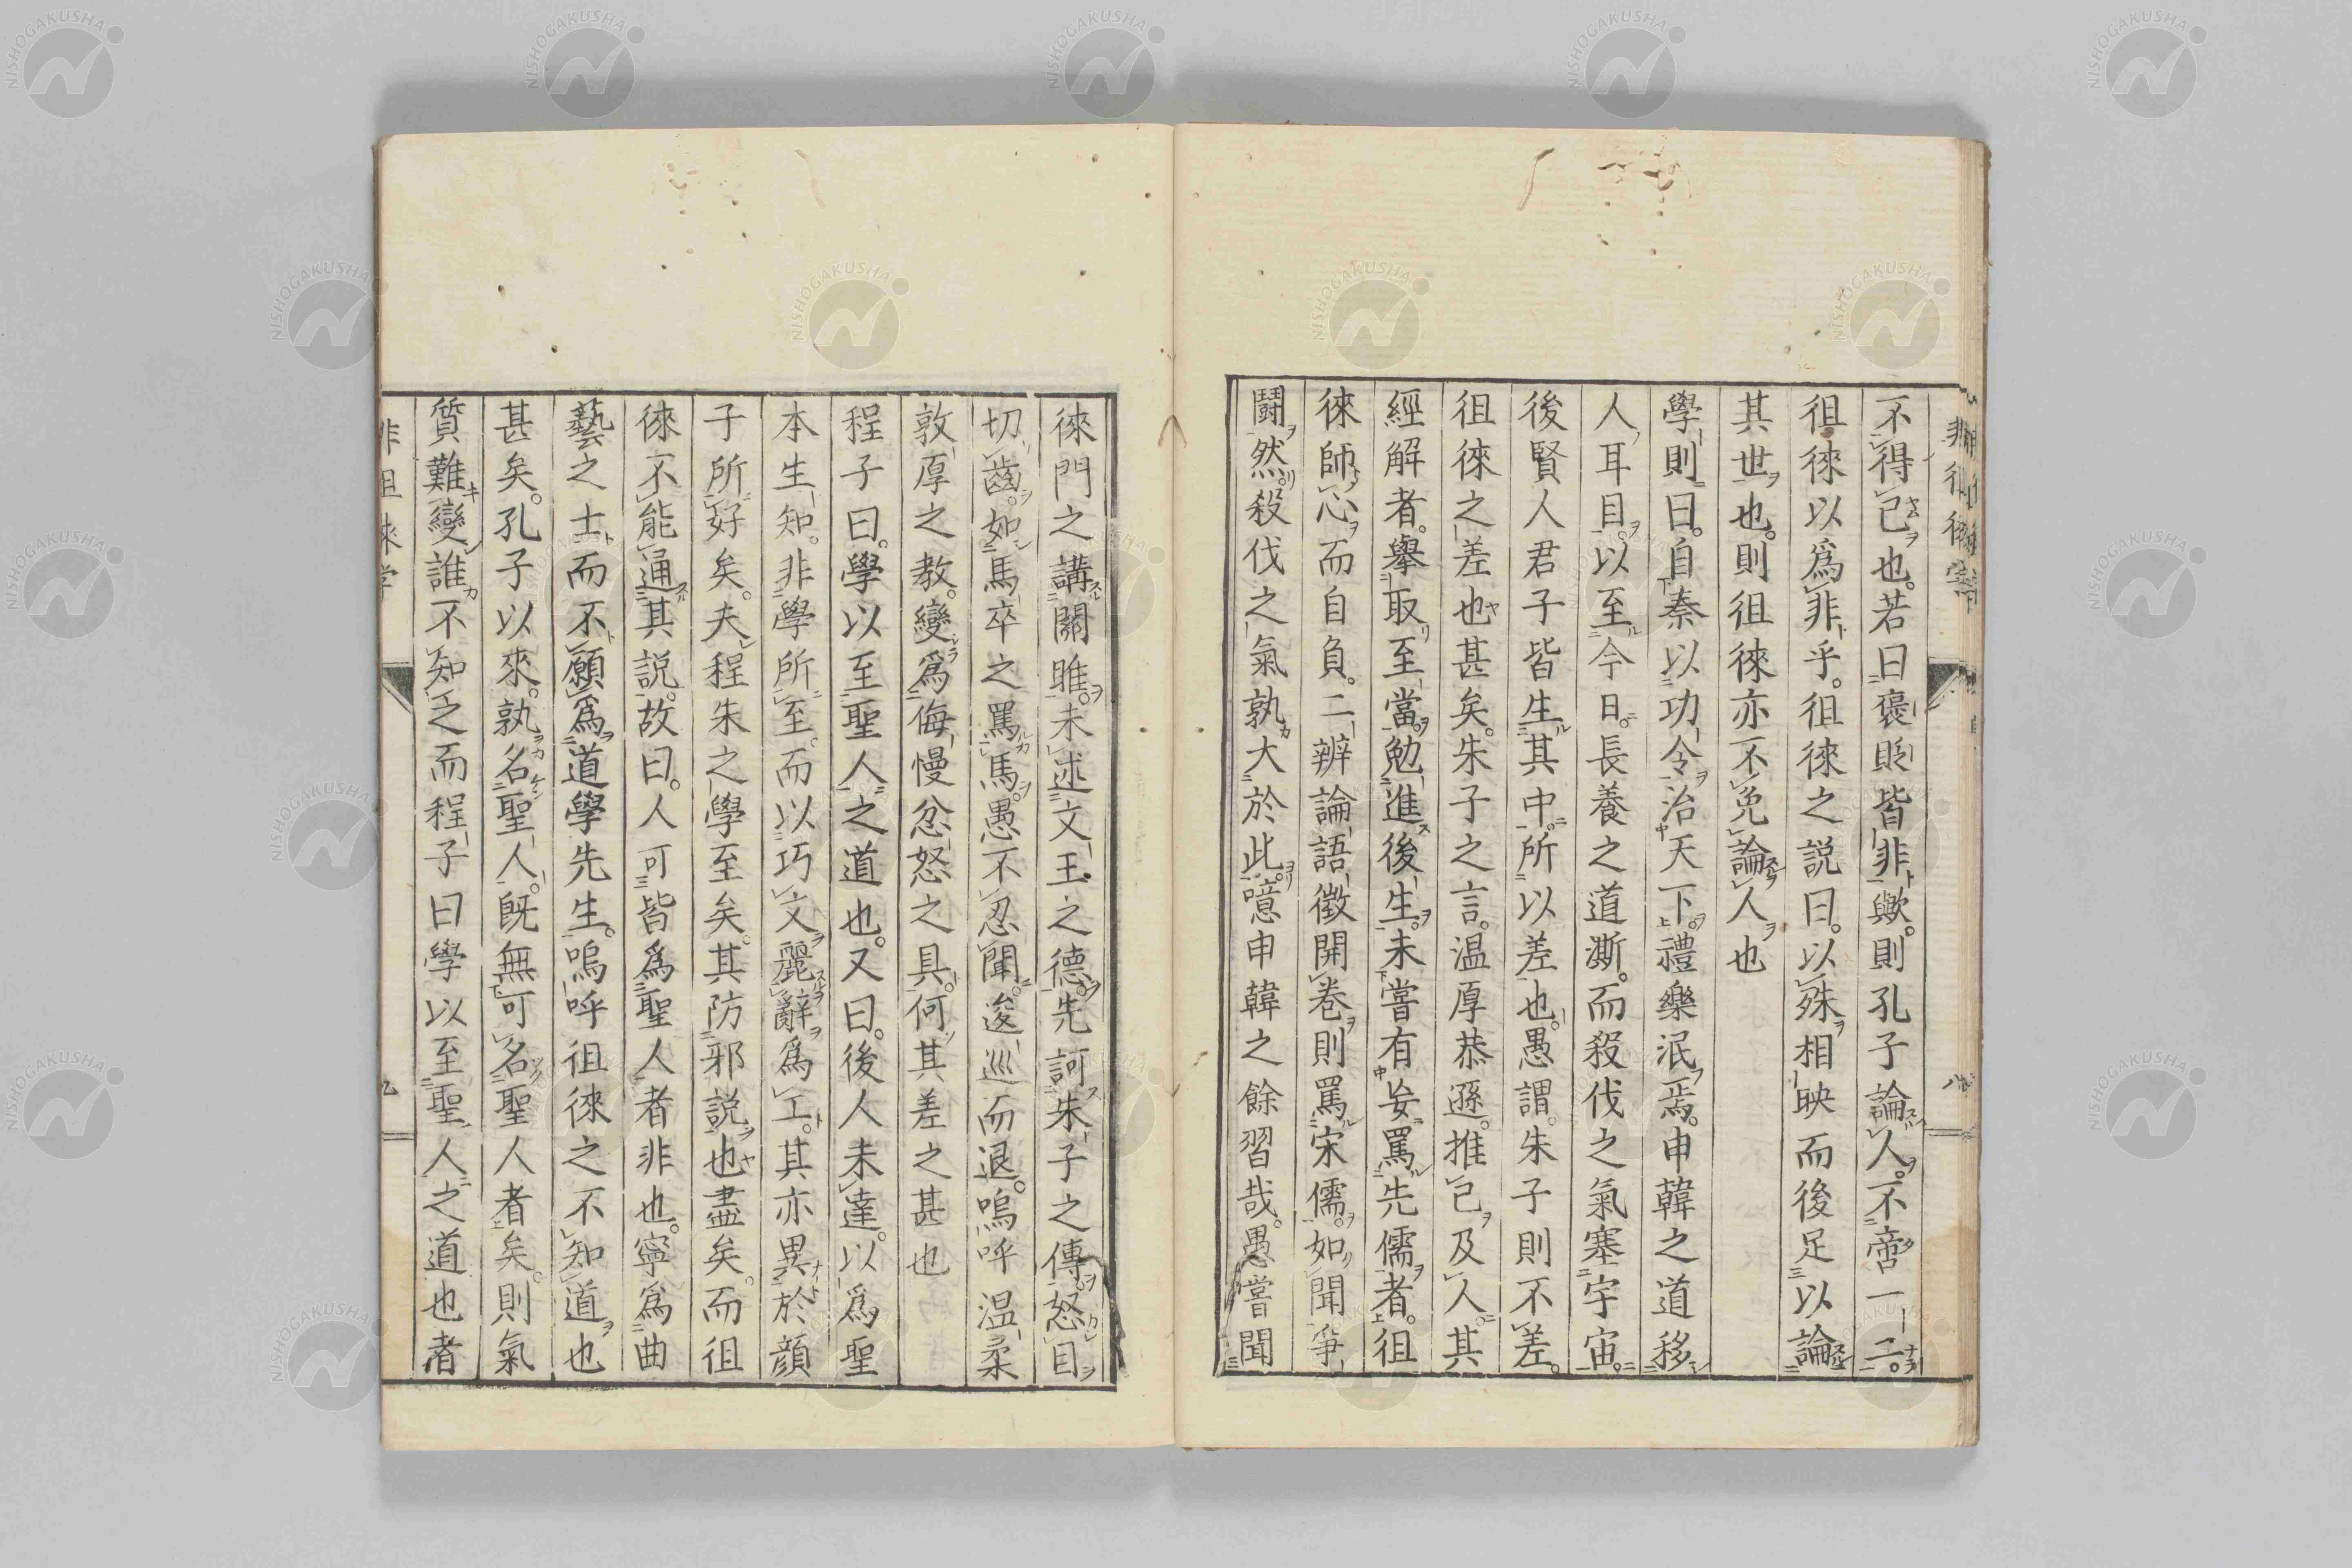 不得已也。若曰褒貶皆非歟。則孔子論人。不啻一二。
徂徠以爲非乎。徂徠之説曰。以殊相映而後足以論
其世也。則徂徠亦不免論人也
學則曰。自秦以功令治天下。禮樂泯焉。申韓之道移
人耳目。以至今日。長養之道澌。而殺伐之氣塞宇宙。
後賢人君子皆生其中。所以差也。愚謂。朱子則不差。
徂徠之差也甚矣。朱子之言。温厚恭遜。推己及人。其
經解者。舉取至當。勉進後生。未嘗有妄罵先儒者。徂
徠師心而自負。二辨論語徴開卷則罵宋儒。如聞爭
鬪然。殺伐之氣孰大於此。噫申韓之餘習哉。愚嘗聞
徠門之講關雎。未述文王之德。先訶朱子之傳。怒目
切齒。如馬卒之罵馬。愚不忍聞。逡巡而退。嗚呼温柔
敦厚之教。變爲侮慢忿怒之具。何其差之甚也
程子曰。學以至聖人之道也。又曰。後人未達。以爲聖
本生知。非學所至。而以巧文麗辭爲工。其亦異於顔
子所好矣。夫程朱之學至矣。其防邪説也盡矣。而徂
徠不能通其説。故曰。人可皆爲聖人者非也。寧爲曲
藝之士而不願爲道學先生。嗚呼徂徠之不知道也
甚矣。孔子以來。孰名聖人。既無可名聖人者矣。則氣
質難變誰不知之而程子曰學以至聖人之道也者
NISHOGAKUSHA